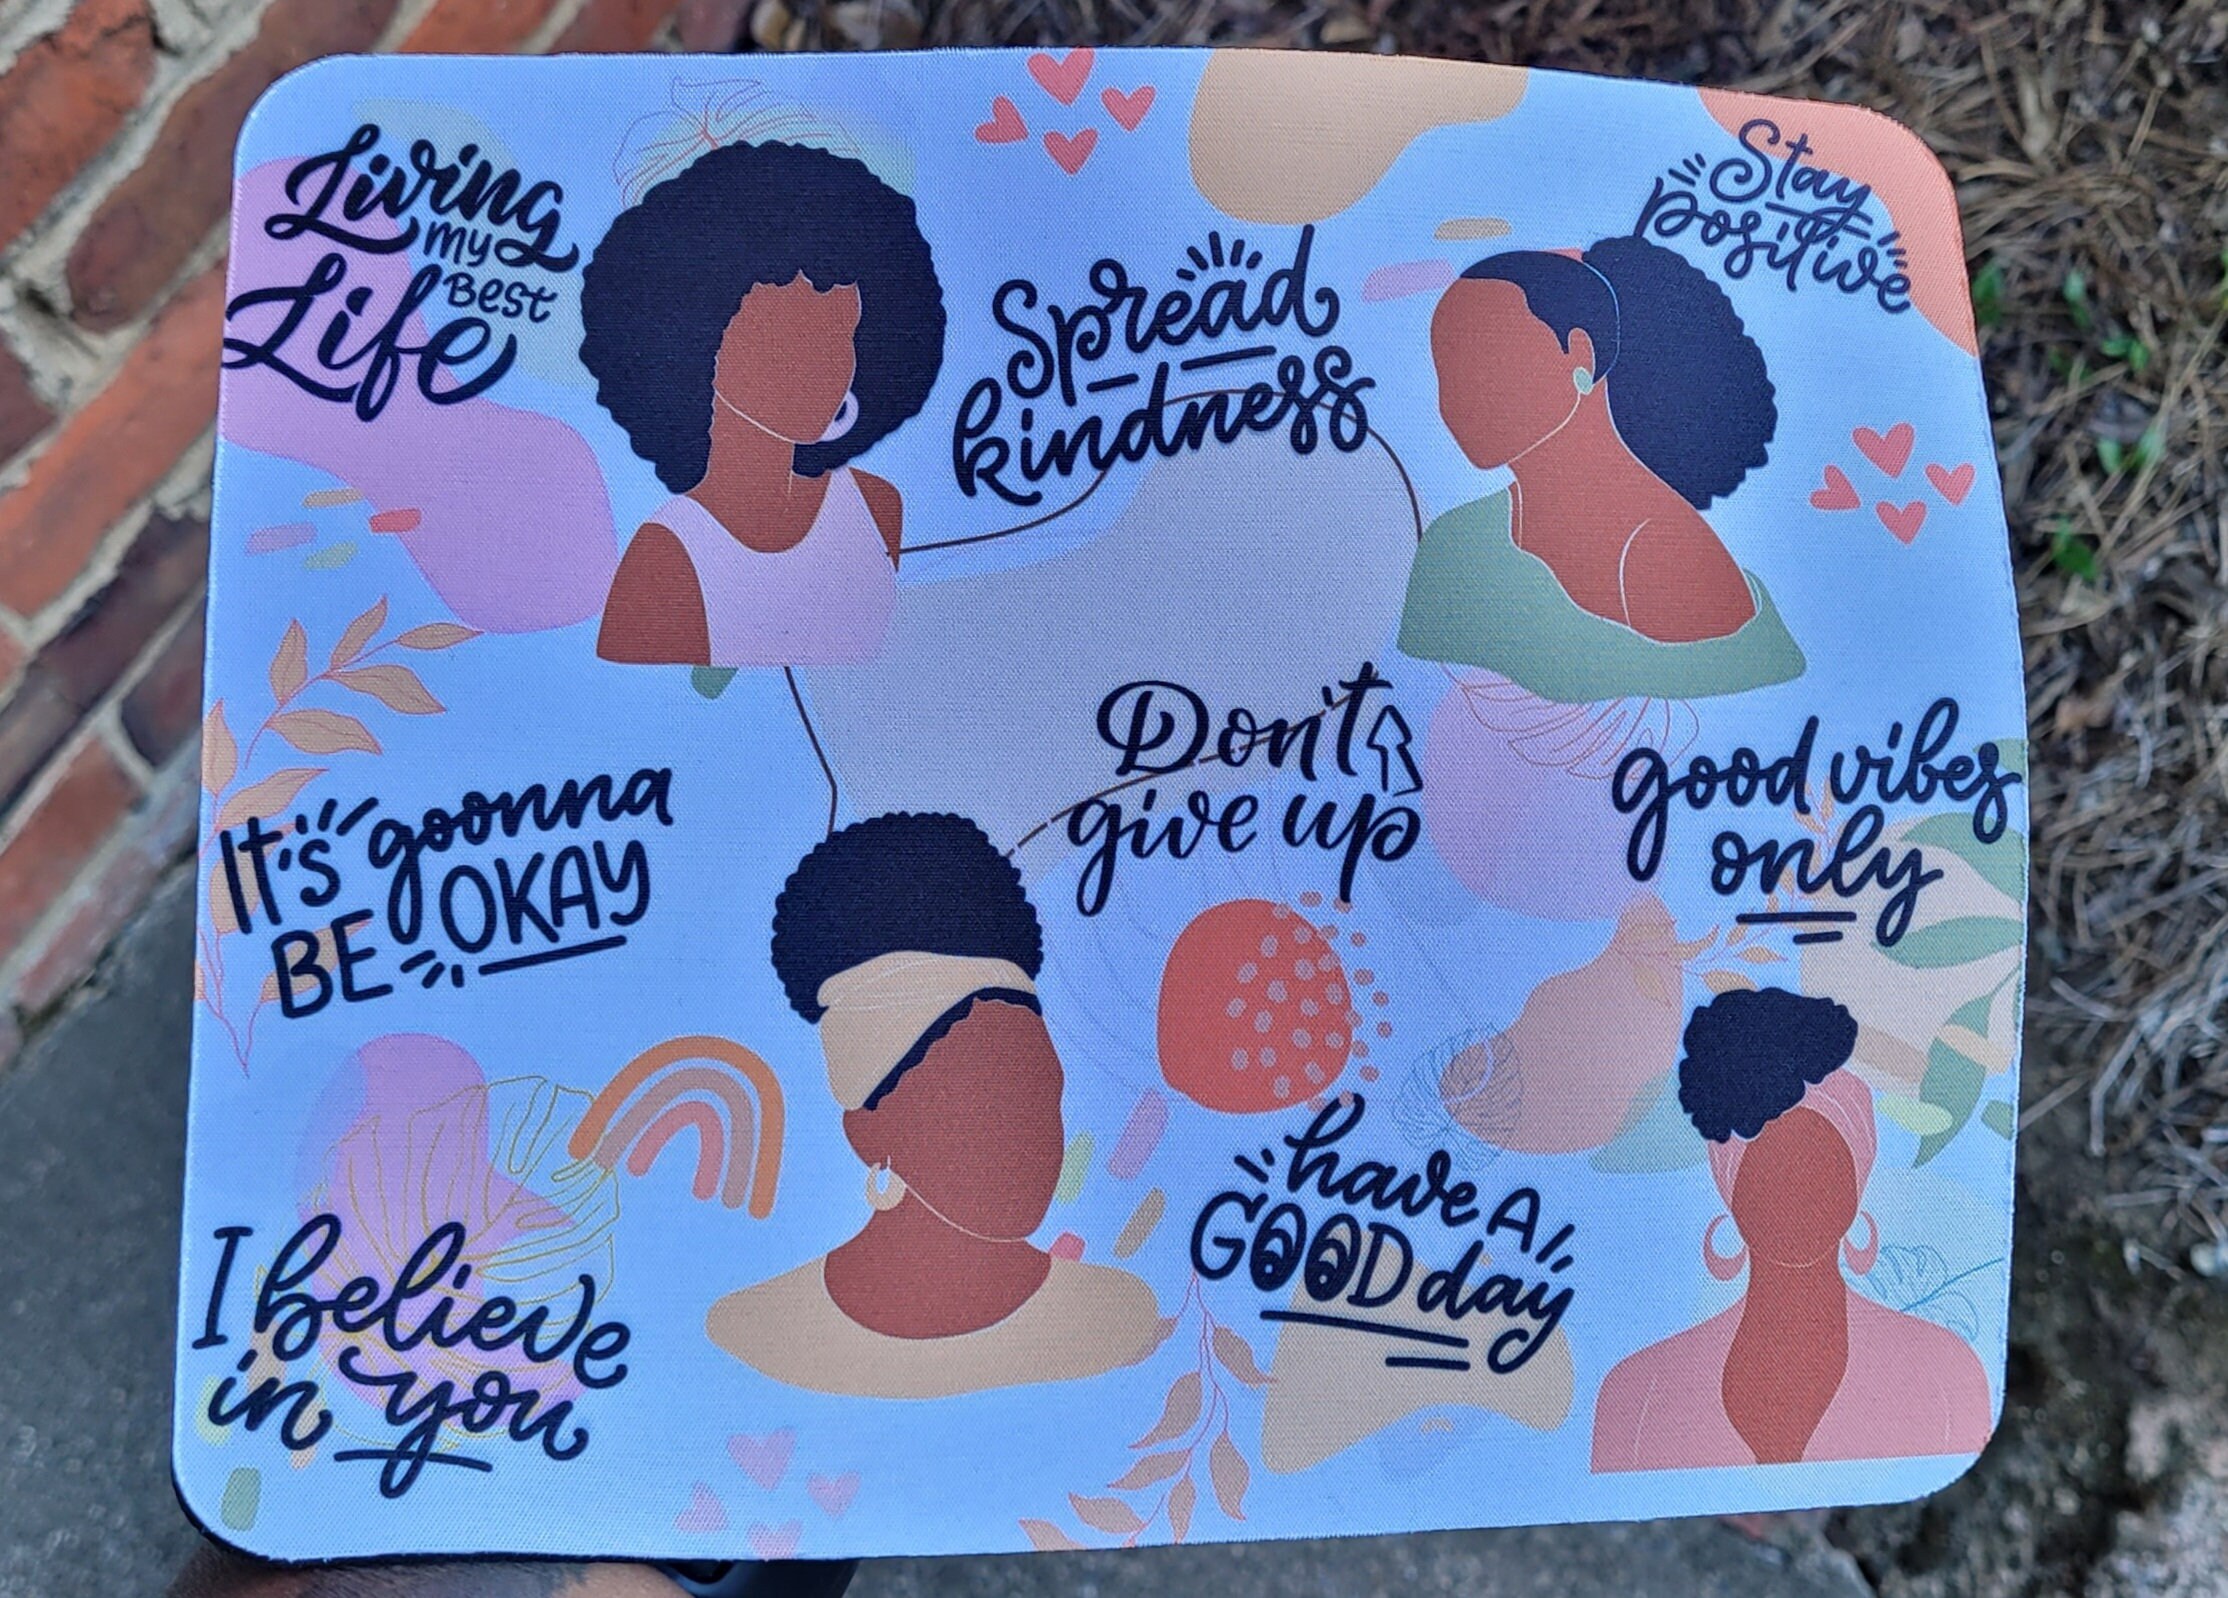 Living
my
Best
Life
Spread
kindness
Stay
positive
It's goonna
BE OKAY
Don't
give up
good vibes
only
I believe
in you
have A
GOOD day